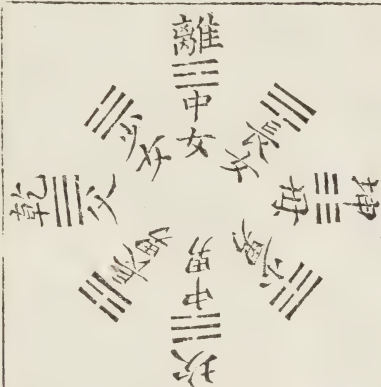 離
中女
長女
坤
母
少男
坎
中男
長男
乾
父
少女